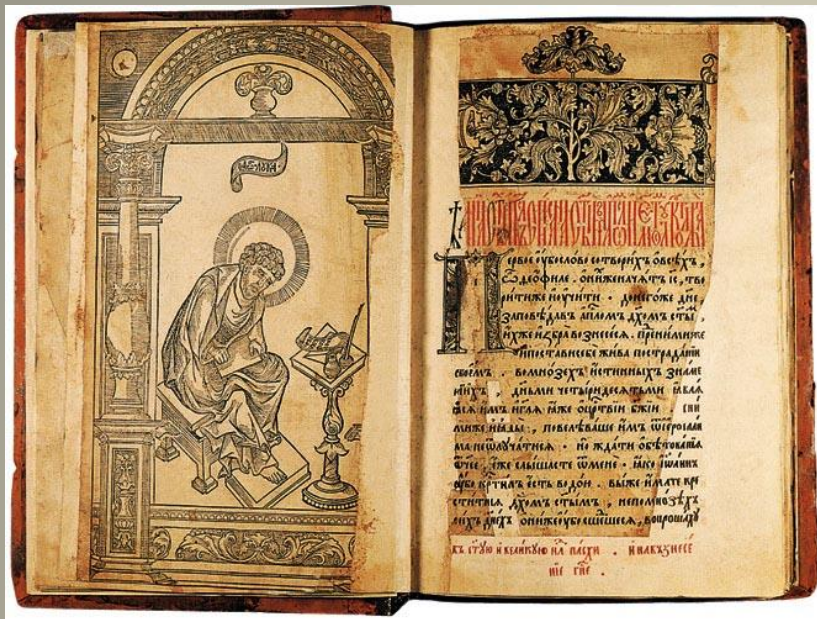 лꙋка
Первое ꙋбо слово сотворихъ о всѣхъ,
ѽ ѳеофиле. о нихже начатъ і҃с, тво
рити же и ꙋчити. донегоже дн҃е
заповѣдавъ ап҃ломъ дх҃омъ ст҃ы,
ихже избра вознесеся. пред нимиже
и постави себе жива по страдании
своемъ. во мнозѣхъ истинныхъ знаме
ниихъ, дньми четыридесятьми ꙗвлѧ
ѧсѧ имъ и гл҃ѧ ꙗже о цр҃ствіи бж҃іи. с ни
миже и ꙗды, повелѣваше имъ ѿ іеросали
ма не ѿлꙋчатися. но ждати обѣтованїѧ
ѿчее, еже слышасте ѿ мене. ꙗко іѡаннъ
ꙋбо крⷭ҇тилъ есть водою. вы же имате кре
ститися дх҃омъ ст҃ымъ, не по мнозѣхъ
сихъ днехъ они же ꙋбо сшедшеся, вопрошахꙋ
въ ст҃ꙋю и великꙋю нлⷣ пасхи. и на възнесе
ніе гн҃е.